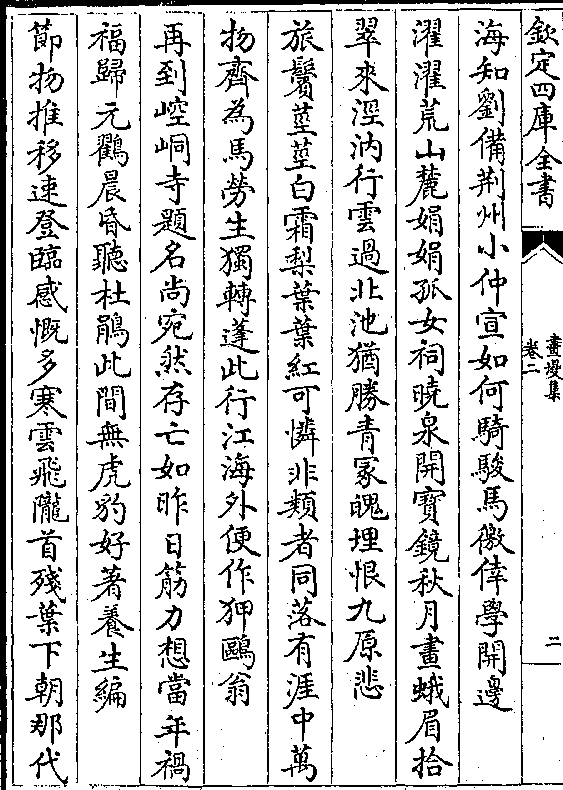 欽定四庫全書
畫墁集
卷二
二
海知劉備荆州小仲宣如何騎駿馬徼倖學開邊
濯濯荒山麓娟娟孤女祠曉泉開寶鏡秋月畫蛾眉拾
翠來涇汭行雲過北池猶勝青冢魄埋恨九原悲
旅鬢莖莖白霜梨葉葉紅可憐非類者同落有涯中萬
物齊為馬勞生獨轉蓬此行江海外便作狎鷗翁
再到崆峒寺題名尚宛然存亡如昨日筋力想當年禍
福歸元鸛晨昏聽杜鵑此間無虎豹好著養生編
節物推移速登臨感慨多寒雲飛隴首殘葉下朝那代